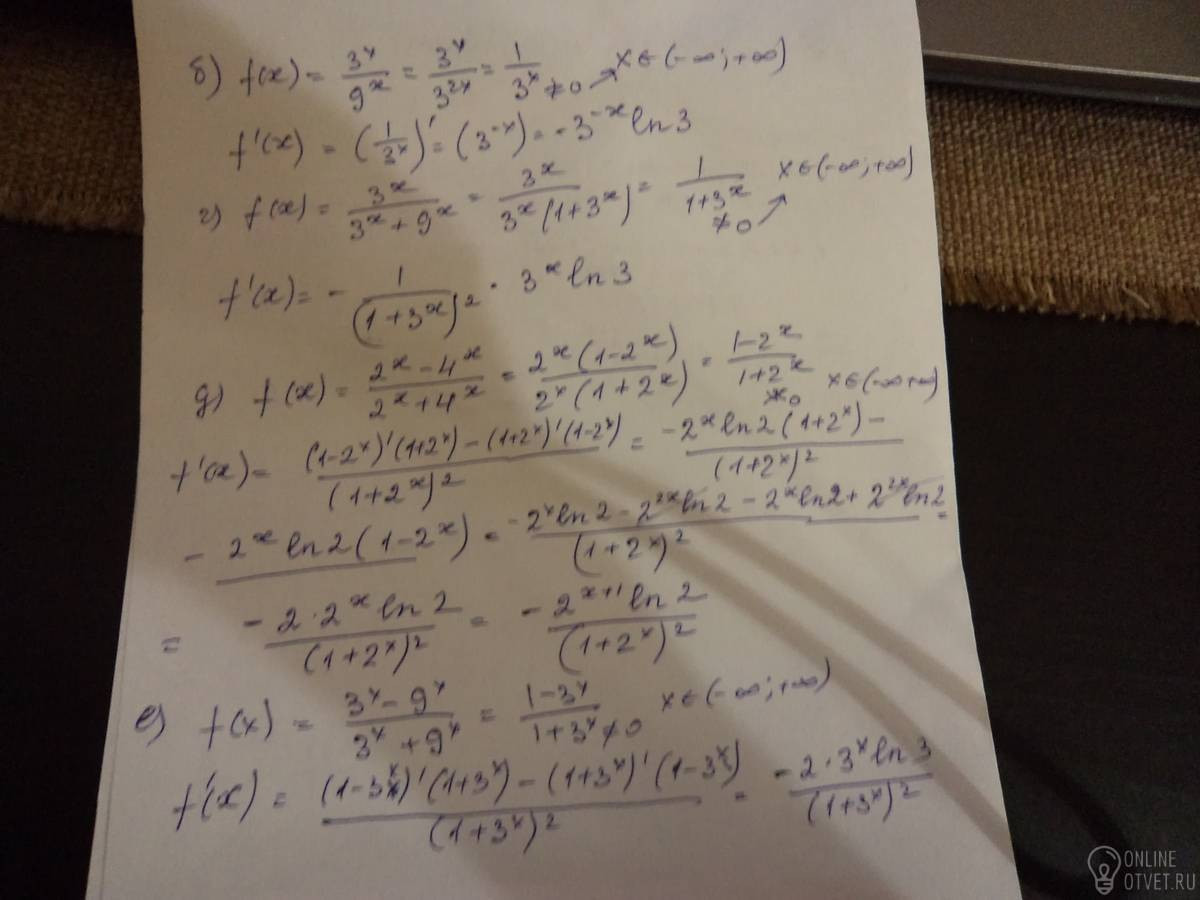 б) f(x) = 3^x/9^x = 3^x/3^{2x} = 1/3^x ≠0 ↗ x∈(-∞;+∞)
f'(x) = (1/3^x)' = (3^{-x}) = -3^{-x} ln3
г) f(x) = 3^x/(3^x+9^x) = 3^x/(3^x(1+3^x)) = 1/(1+3^x) ≠0 ↗ x∈(-∞;+∞)
f'(x) = - 1/(1+3^x)^2 · 3^x ln3
д) f(x) = (2^x-4^x)/(2^x+4^x) = 2^x(1-2^x)/(2^x(1+2^x)) = (1-2^x)/(1+2^x) ≠0 x∈(-∞+∞)
f'(x) = ((1-2^x)'(1+2^x)-(1+2^x)'(1-2^x))/(1+2^x)^2 = (-2^x ln2(1+2^x)-)/(1+2^x)^2
- 2^x ln2(1-2^x) = (-2^x ln2 - 2^{2x} ln2 - 2^x ln2 + 2^{2x} ln2)/(1+2^x)^2 =
= -2·2^x ln2/(1+2^x)^2 = -2^{x+1} ln2/(1+2^x)^2
е) f(x) = (3^x-9^x)/(3^x+9^x) = (1-3^x)/(1+3^x) ≠0 x∈(-∞;+∞)
f'(x) = ((1-3^x)'(1+3^x)-(1+3^x)'(1-3^x))/(1+3^x)^2 = -2·3^x ln3/(1+3^x)^2
ONLINE
OTVET.RU